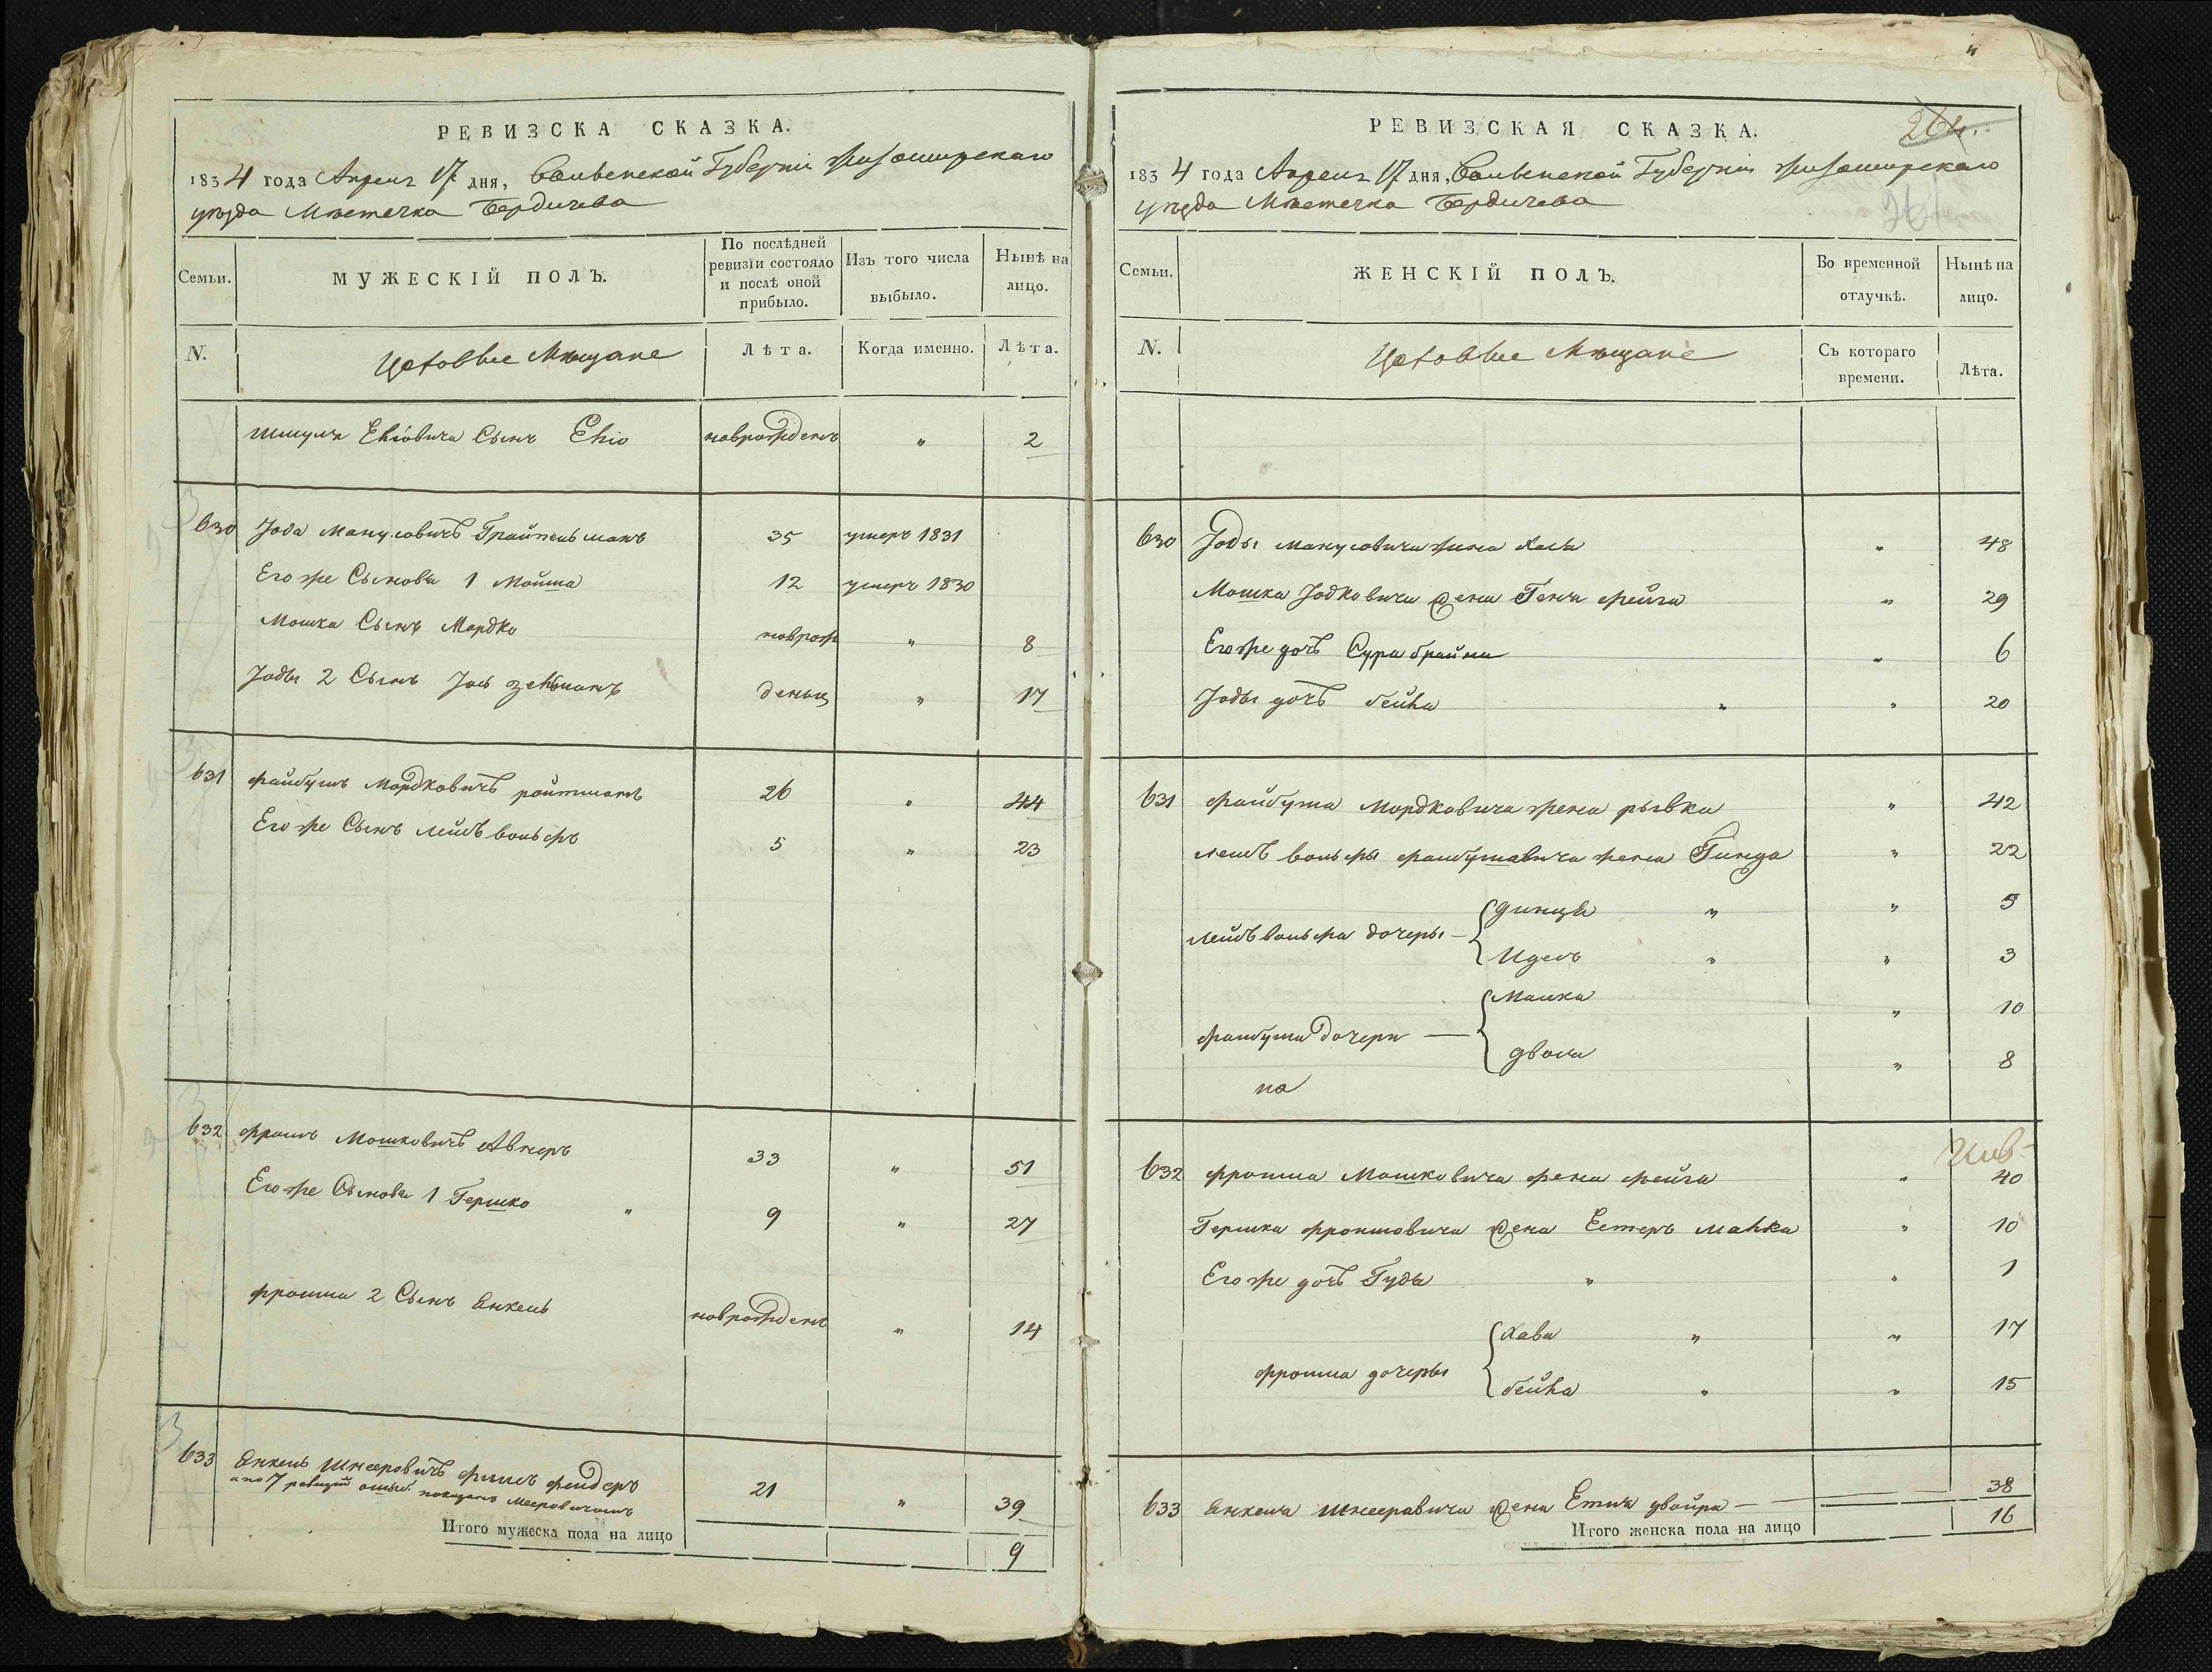 РЕВИЗСКА СКАЗКА.
1834 года Апреля 17 дня, Волынской Губерніи Житомирскаго
уѣзда Мѣстечка Бердичева
Семьи.
МУЖЕСКІЙ ПОЛЪ.
По послѣдней ревизіи состояло и послѣ оной прибыло.
Изъ того числа выбыло.
Нынѣ на лицо.
N.
Цеховые Мѣщане
Лѣта.
Когда именно.
Лѣта.
Шмуля Ehioвича Сынъ Ehio новрожденъ " 2
630 Йода Манусовичъ Грайпельманъ 35 умеръ 1831
Его же Сыновья 1 Мошка 12 умеръ 1830
Мошка Сынъ Мордко новрож " 8
Йоды 2 Сынъ Йось Зельманъ денъ " 17
631 Файбушъ Мордковичъ ройтманъ 26 " 44
Его же Сынъ лейбъ вольфъ 5 " 23
632 фроимъ Мошковичъ Авнеръ 33 " 51
Его же Сыновья 1 Гершко " 9 " 27
фроима 2 Сынъ Янкель новрожденъ " 14
633 Янкель Шнееровичъ фельдеръ 21 " 39
а по 7 ревизіи ошиб. показанъ Мееровичомъ
Итого мужеска пола на лицо 9
РЕВИЗСКАЯ СКАЗКА.
264.
1834 года Апреля 17 дня, Волынской Губерніи Житомирскаго
уѣзда Мѣстечка Бердичева
Семьи.
ЖЕНСКІЙ ПОЛЪ.
Во временной отлучкѣ.
Нынѣ на лицо.
N.
Цеховые Мѣщане
Съ котораго времени.
Лѣта.
630 Йоды Манусовича жена Хася " 48
Мошка Йодковича жена Геня фейга " 29
Его же дочь Сура брайна " 6
Йоды дочь бейhа " " 20
631 файбуша Мордковича жена рывка " 42
лейбъ вольфы файбушовича жена Гинда " 22
лейбъ вольфа дочеры — { динця " " 5
Идесъ " " 3
файбуша дочери — { Малка " 10
двося " 8
632 фроима Мошковича жена фейга " 40
Гершка фроимовича жена Естеръ маhка " 10
Его же дочь Гудя " " 1
фроима дочеры { хава " " 17
бейhа " " 15
633 Янкеля Шнееровича жена Етля двойра — 38
Итого женска пола на лицо 16